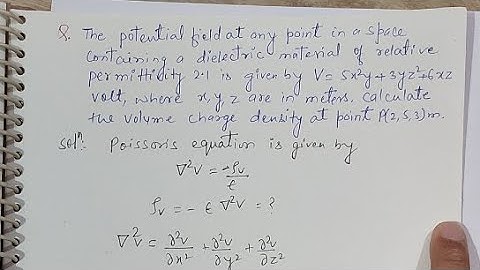 Q. The potential field at any point in a space
containing a dielectric material of relative
permittivity 2.1 is given by V = 5x²y + 3yz² + 6xz
volt, where x, y, z are in meters. calculate
the volume charge density at point P(2,5,3)m.
solⁿ: Poisson's equation is given by
∇²V = -ρv/ε
ρv = - ε ∇²V = ?
∇²V = ∂²V/∂x² + ∂²V/∂y² + ∂²V/∂z²